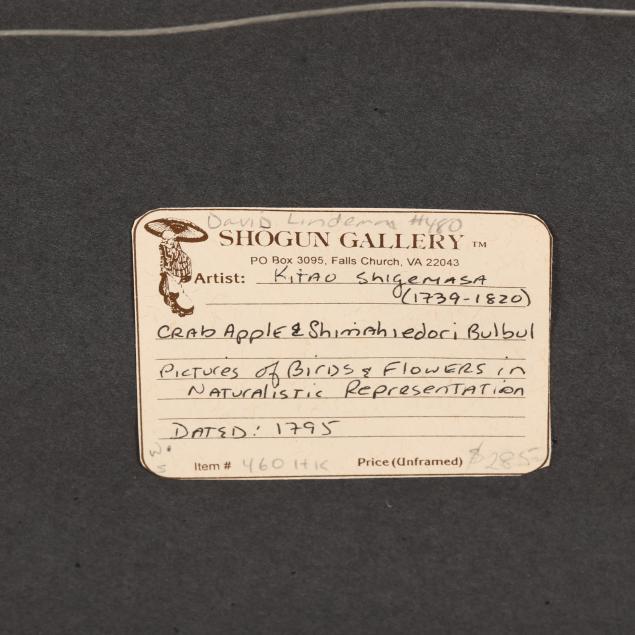 David Lindemn #480
SHOGUN GALLERY ™
PO Box 3095, Falls Church, VA 22043
Artist: Kitao Shigemasa
(1739-1820)
Crab Apple & Shimahiedori Bulbul
Pictures of Birds & Flowers in
Naturalistic Representation
DATED: 1795
Item # 460 HK Price (Unframed) $285-